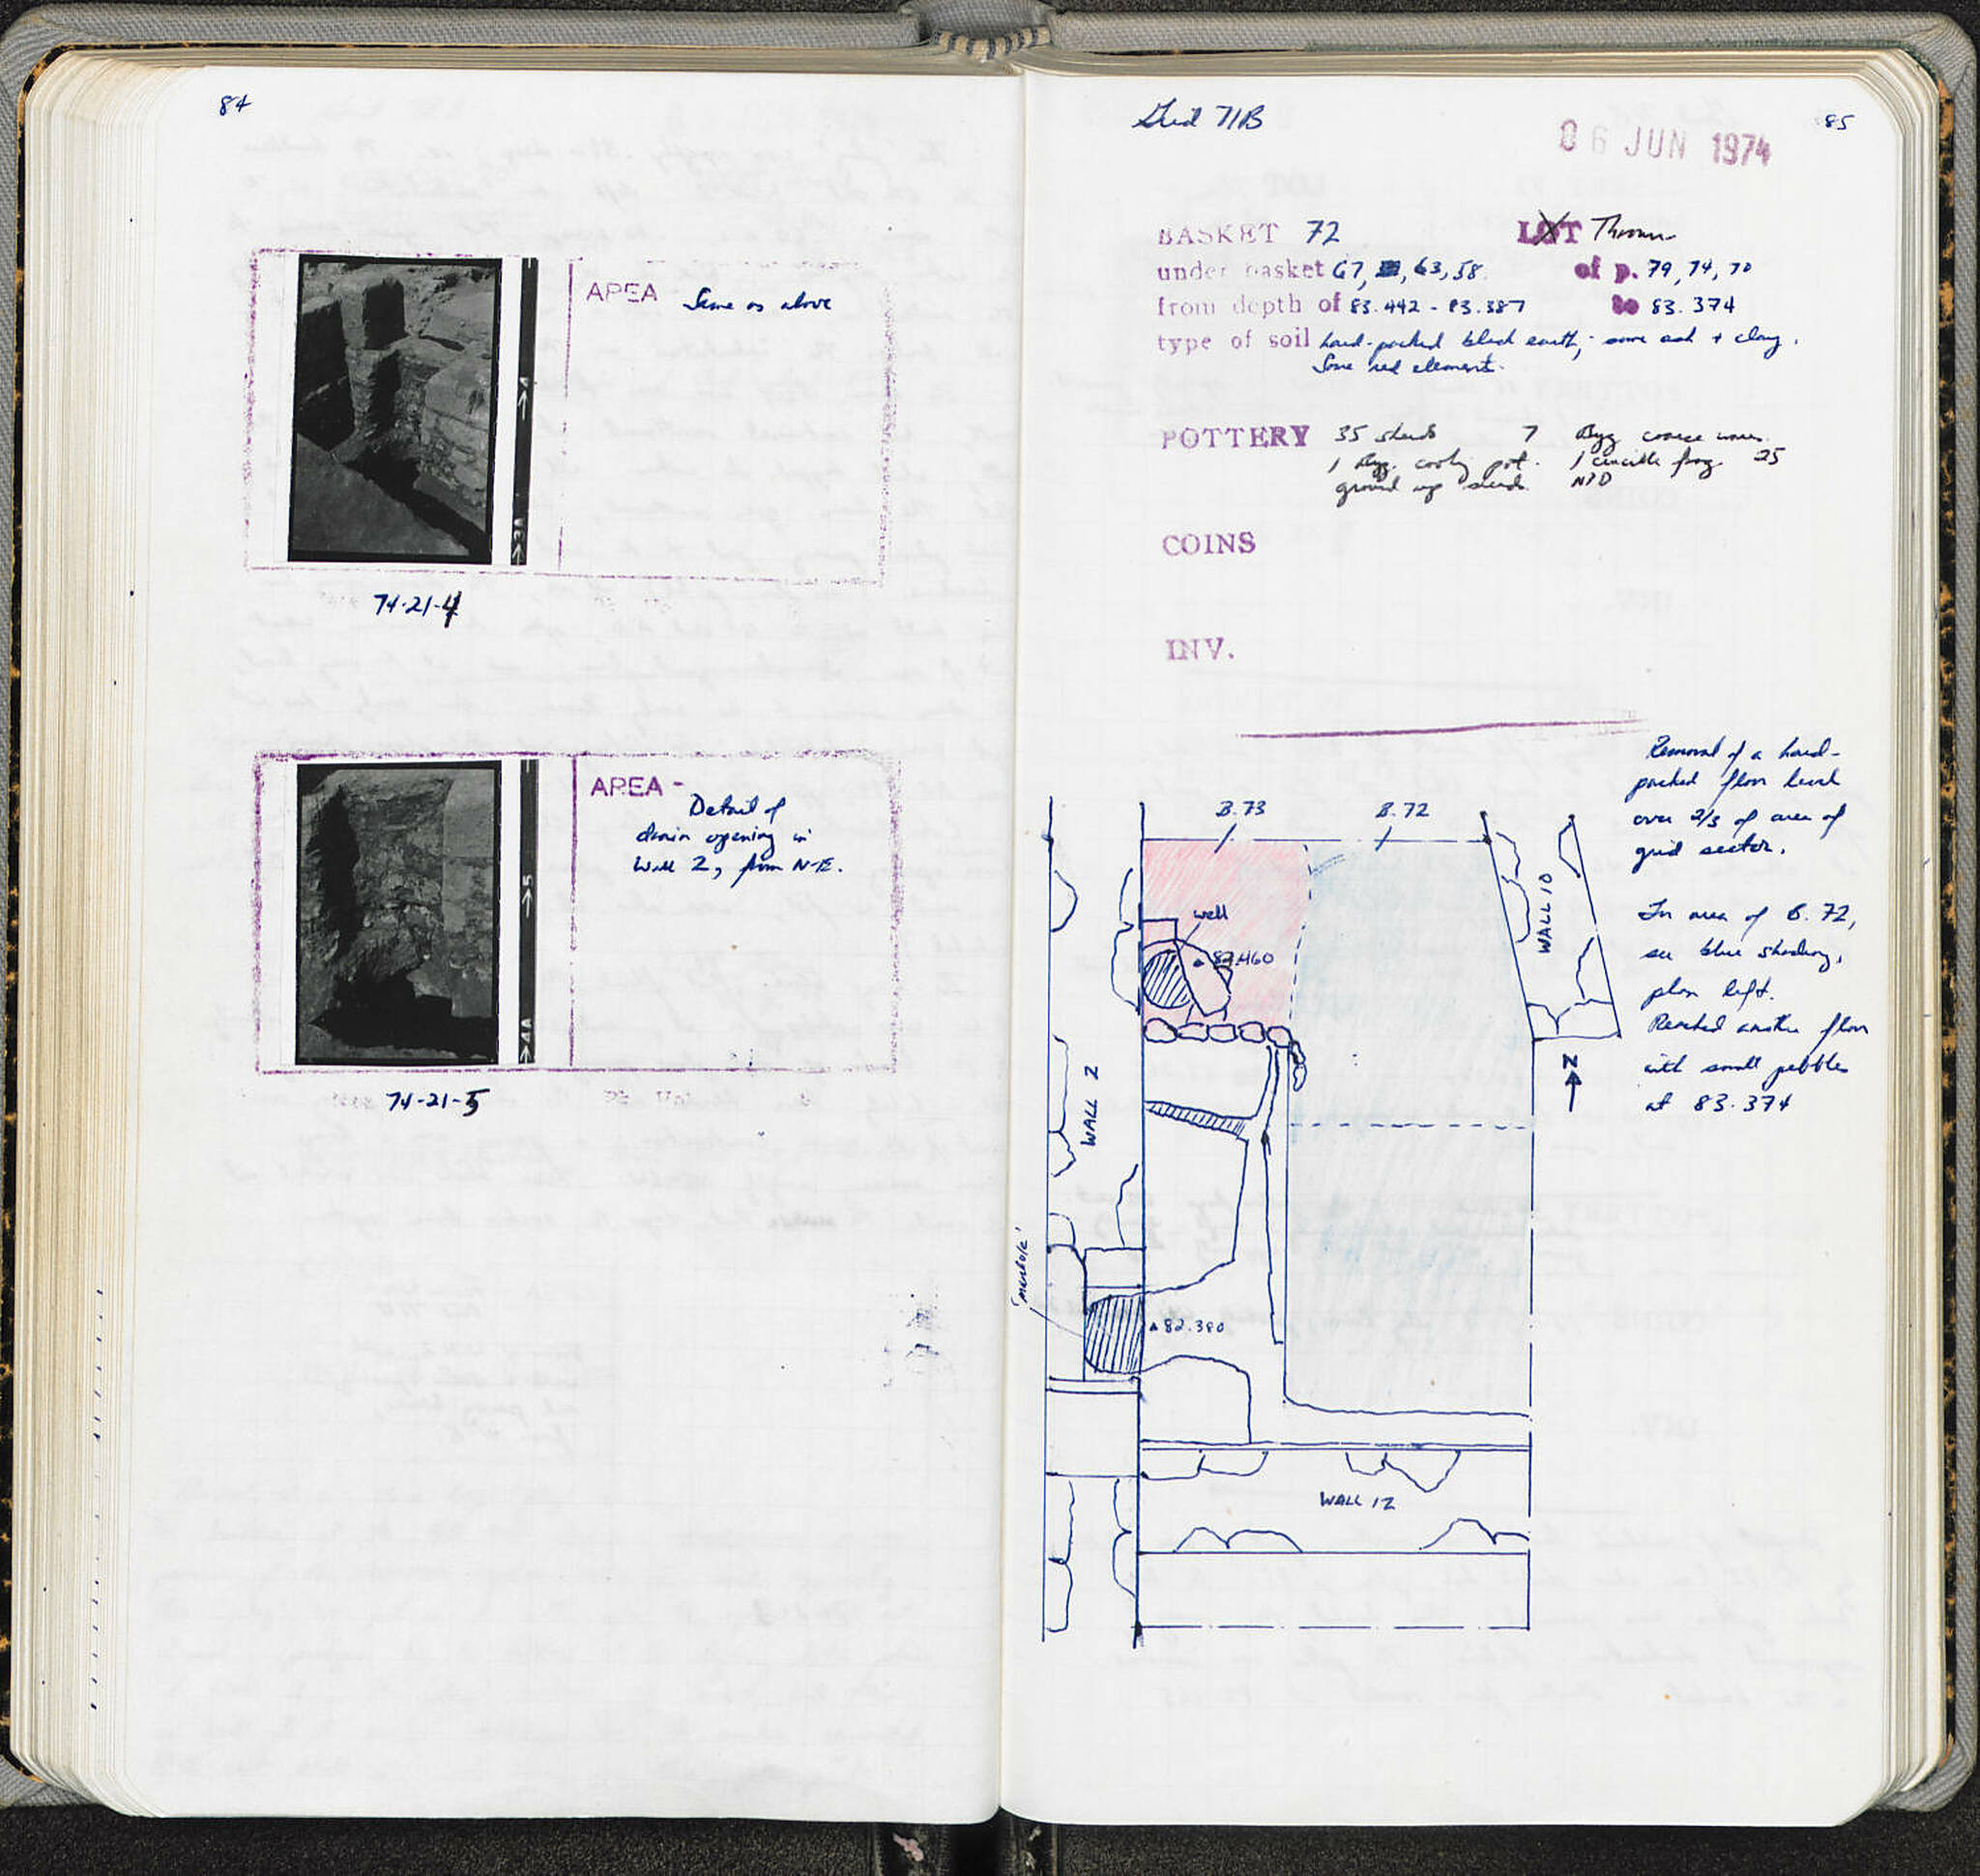 84
AREA Same as above
→4
→3A
74-21-4
AREA - Detail of
drain opening in
Wall 2, from N-E.
→5
→4A
74-21-5
Grid 71B
85
06 JUN 1974
BASKET 72 LOT Thrown
under basket 67, 63, 58. of p. 79, 74, 70
from depth of 83.442 - 83.387 to 83.374
type of soil hard-packed black earth; some ash + clay.
Some red element.
POTTERY 35 sherds 7 Byz coarse wares.
1 Byz. cooking pot. 1 crucible frag. 25
ground up sherds. NPD
COINS
INV.
Removal of a hard-
packed floor level
over 2/3 of area of
grid sector.
In area of B. 72,
see blue shading,
plan left.
Reached another floor
with small pebbles
at 83.374
B.73
B.72
well
82.460
WALL 10
N
WALL 2
'manhole'
82.380
WALL 12